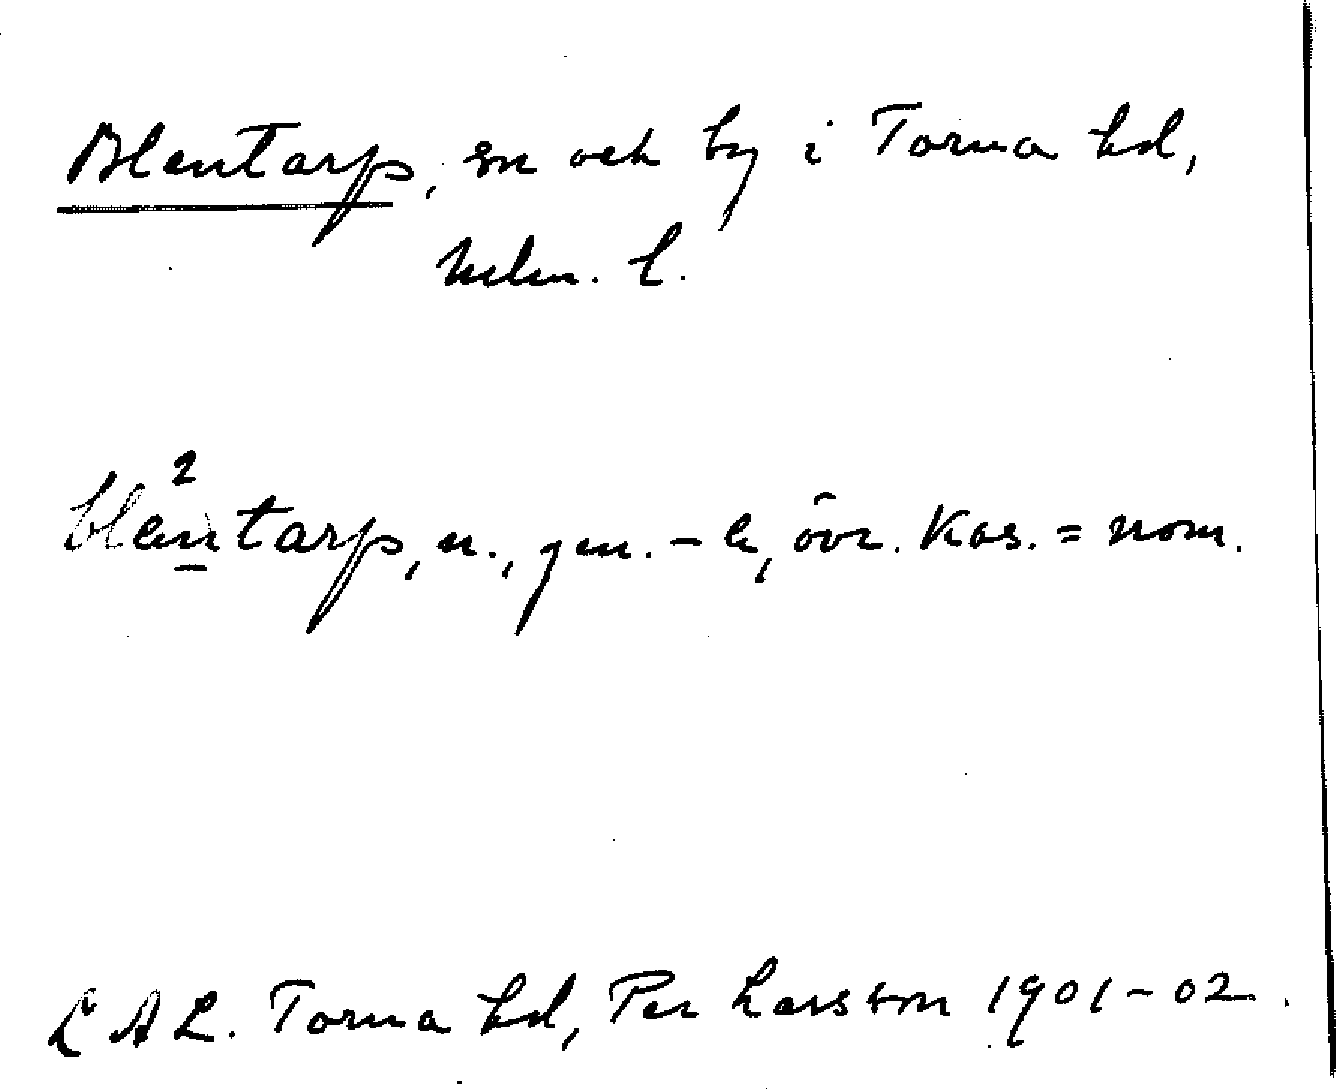 Blentarp, sn och by i Torna hd,
Mlm. l.
blentarp, n., gen. - e, övr. kas. = nom.
LAL. Torna hd, Per Larsson 1901-02.